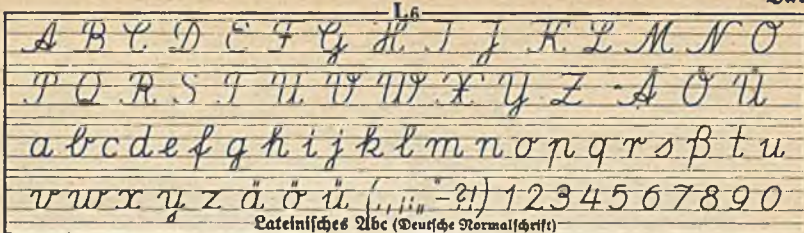 L6
A B C D E F G H I J K L M N O
P Q R S T U V W X Y Z Ä Ö Ü
a b c d e f g h i j k l m n o p q r s ß t u
v w x y z ä ö ü (., ; : „ " - ? !) 1 2 3 4 5 6 7 8 9 0
Lateinisches Abc (Deutsche Normalschrift)